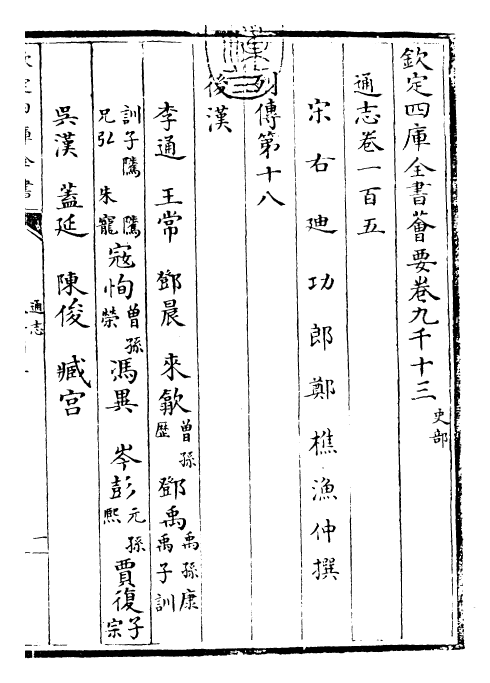 欽定四庫全書薈要卷九千十三 史部
通志卷一百五
宋右廸功郎鄭樵漁仲撰
列傳第十八
後漢
李通 王常 鄧晨 來歙 曾孫歷 鄧禹 禹孫康 禹子訓
訓子騭 騭兄弘 朱寵 寇恂 曾孫榮 馮異 岑彭 元孫熙 賈復 子宗
吳漢 蓋延 陳俊 臧宫
欽定四庫全書
通志
一